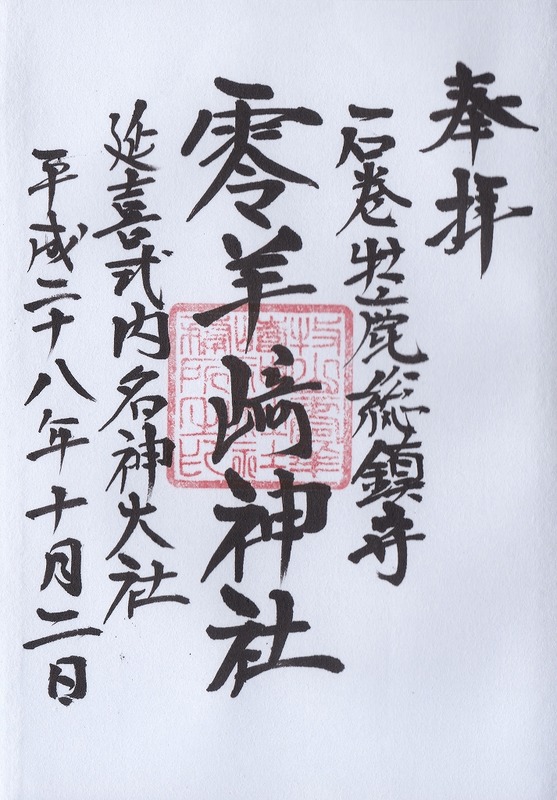 奉拝
石巻牡鹿総鎮守
零羊﨑神社
延喜式内名神大社
平成二十八年十月二日